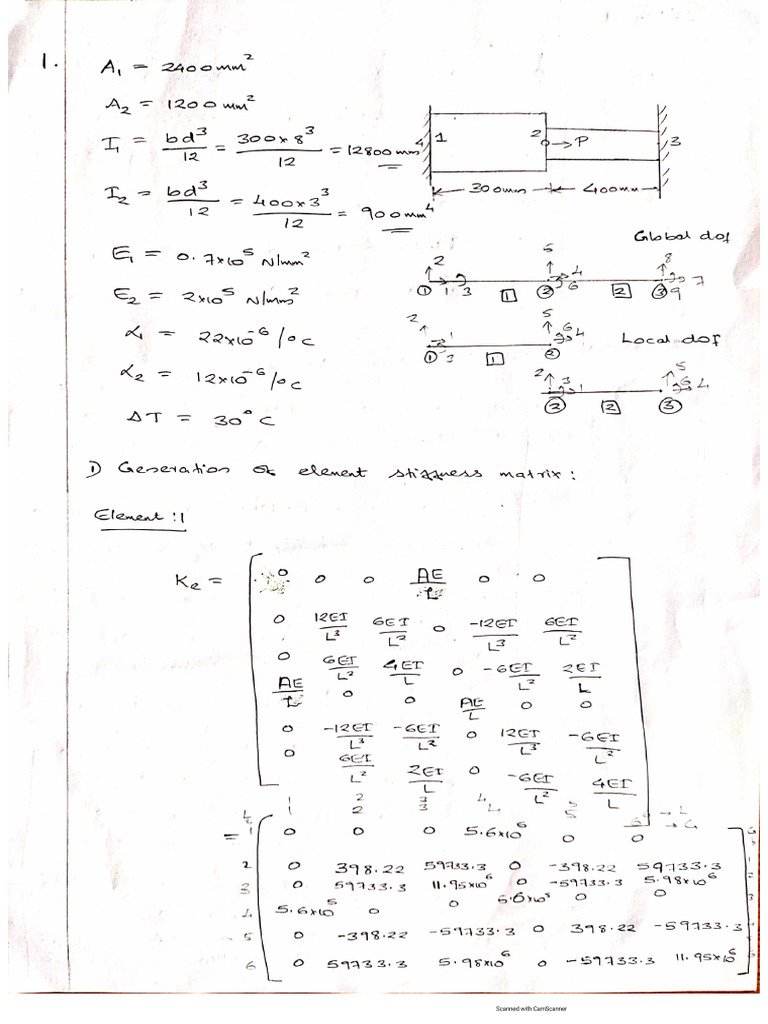 1.
A₁ = 2400mm²
A₂ = 1200mm²
I₁ = bd³/12 = 300×8³/12 = 12800mm⁴
I₂ = bd³/12 = 400×3³/12 = 900mm⁴
1 2 → P 3
300mm 400mm
E₁ = 0.7×10⁵ N/mm²
E₂ = 2×10⁵ N/mm²
α₁ = 22×10⁻⁶/°C
α₂ = 12×10⁻⁶/°C
ΔT = 30°C
Global dof
2 5 8
① 1 3 [1] ② 4 6 [2] ③ 7 9
Local dof
2 1 5 6 4
① 3 [1] ②
2 3 1 5 6 4
② [2] ③
1) Generation of element stiffness matrix:
Element:1
Ke =
0 0 0 AE/L 0 0
0 12EI/L³ 6EI/L² 0 -12EI/L³ 6EI/L²
0 6EI/L² 4EI/L 0 -6EI/L² 2EI/L
AE/L 0 0 AE/L 0 0
0 -12EI/L³ -6EI/L² 0 12EI/L³ -6EI/L²
0 6EI/L² 2EI/L 0 -6EI/L² 4EI/L
1 2 3 4 5 6 → L
1 2 3 4 5 → G
=
1 0 0 0 5.6×10⁶ 0 0
2 0 398.22 59733.3 0 -398.22 59733.3
3 0 59733.3 11.95×10⁶ 0 -59733.3 5.98×10⁶
4 5.6×10⁵ 0 0 5.6×10⁵ 0 0
5 0 -398.22 -59733.3 0 398.22 -59733.3
6 0 59733.3 5.98×10⁶ 0 -59733.3 11.95×10⁶
Scanned with CamScanner